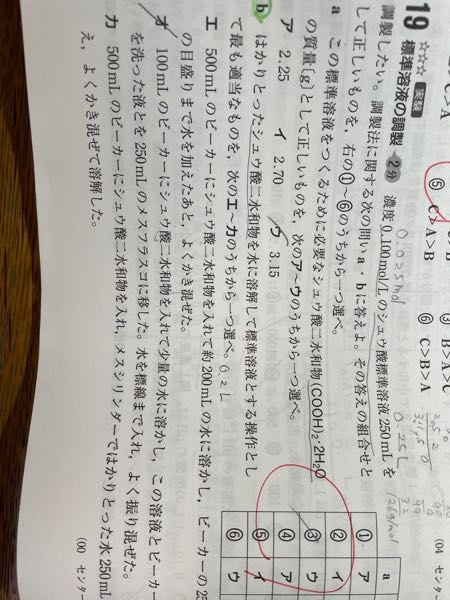 ⑤ C>A>B
③ B>A>C
⑥ C>B>A
19 ☆☆☆ 実験 標準溶液の調製 2分 濃度0.100mol/Lのシュウ酸標準溶液250mLを
調製したい。調製法に関する次の問いa・bに答えよ。その答えの組合せと
して正しいものを，右の①～⑥のうちから一つ選べ。
a この標準溶液をつくるために必要なシュウ酸二水和物(COOH)₂・2H₂O
の質量〔g〕として正しいものを，次のア～ウのうちから一つ選べ。
ア 2.25 イ 2.70 ウ 3.15
b はかりとったシュウ酸二水和物を水に溶解して標準溶液とする操作とし
て最も適当なものを，次のエ～カのうちから一つ選べ。 0.2L
エ 500mLのビーカーにシュウ酸二水和物を入れて約200mLの水に溶かし，ビーカーの25
の目盛りまで水を加えたあと，よくかき混ぜた。
オ 100mLのビーカーにシュウ酸二水和物を入れて少量の水に溶かし，この溶液とビーカー
を洗った液とを250mLのメスフラスコに移した。水を標線まで入れ，よく振り混ぜた。
カ 500mLのビーカーにシュウ酸二水和物を入れ，メスシリンダーではかりとった水250mL
え，よくかき混ぜて溶解した。
(00 センター
(04 センタ
0.025mol
0.25L
126g/mol
a
① ア
② イ
③ ウ
④ ア
⑤ イ
⑥ ウ